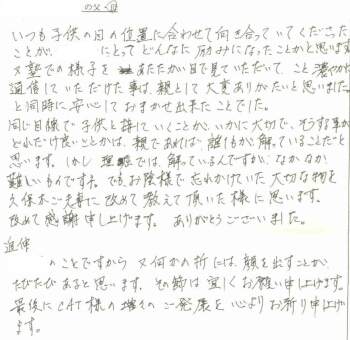 の父く母
いつも子供の目の位置に合わせて向き合っていてくださった
ことが、 にとってどんなに励みになったことかと思います
又塾での様子を あたたかい目で見ていただいて、こと濃やかに
通信していただけた事は、親として大変ありがたいと思いました。
と同時に安心しておまかせ出来たことでした。
同じ目線で子供と接していくことが、いかに大切で、そうする事が
どれだけ良いことかは、親であれば誰もが解っていることだと
思います。しかし では、解っているんですが、なかなか
難しいものですネ。でも、お陰様で忘れかけていた大切な物を
久保本ご夫妻に改めて教えて頂いた様に思います。
改めて感謝申し上げます。 ありがとうございました。
追伸
のことですから又何かの折には、顔を出すことが
たびたびあると思います。その節は宜しくお願い申し上げます。
最後にCAT様の増々のご発展を心よりお祈り申し上げ
ます。